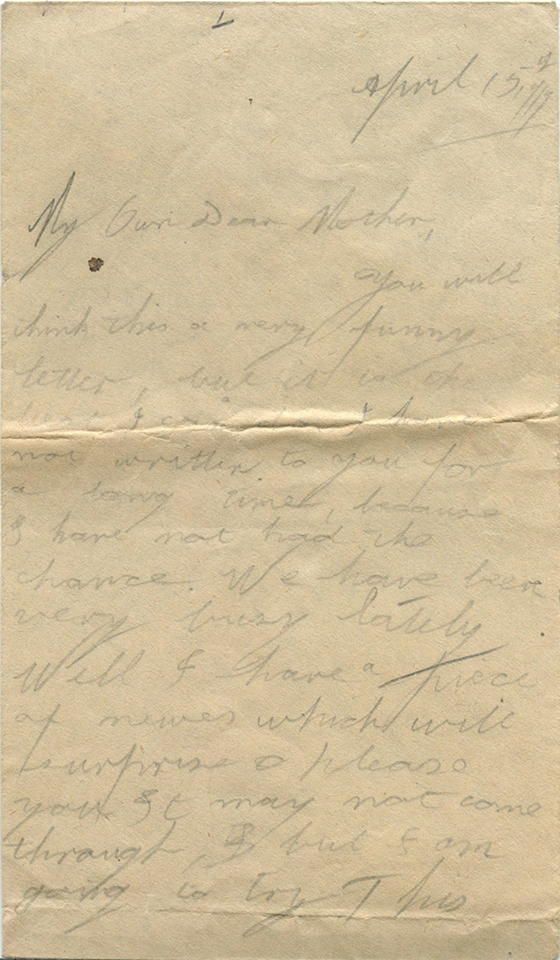 April 15th
My Own Dear Mother,
You will
think this a very funny
letter, but it is the
best I can do I have
not written to you for
a long time, because
I have not had the
chance. We have been
very busy lately
Well I have a piece
of newes which will
surprise & please
you It may not come
through, but I am
going to try This